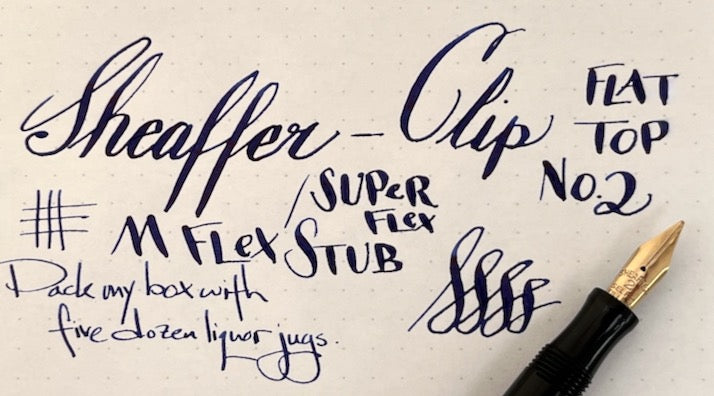 Sheaffer – Clip
FLAT
TOP
No. 2
M FLEX / SUPER
FLEX
STUB
Pack my box with
five dozen liquor jugs.